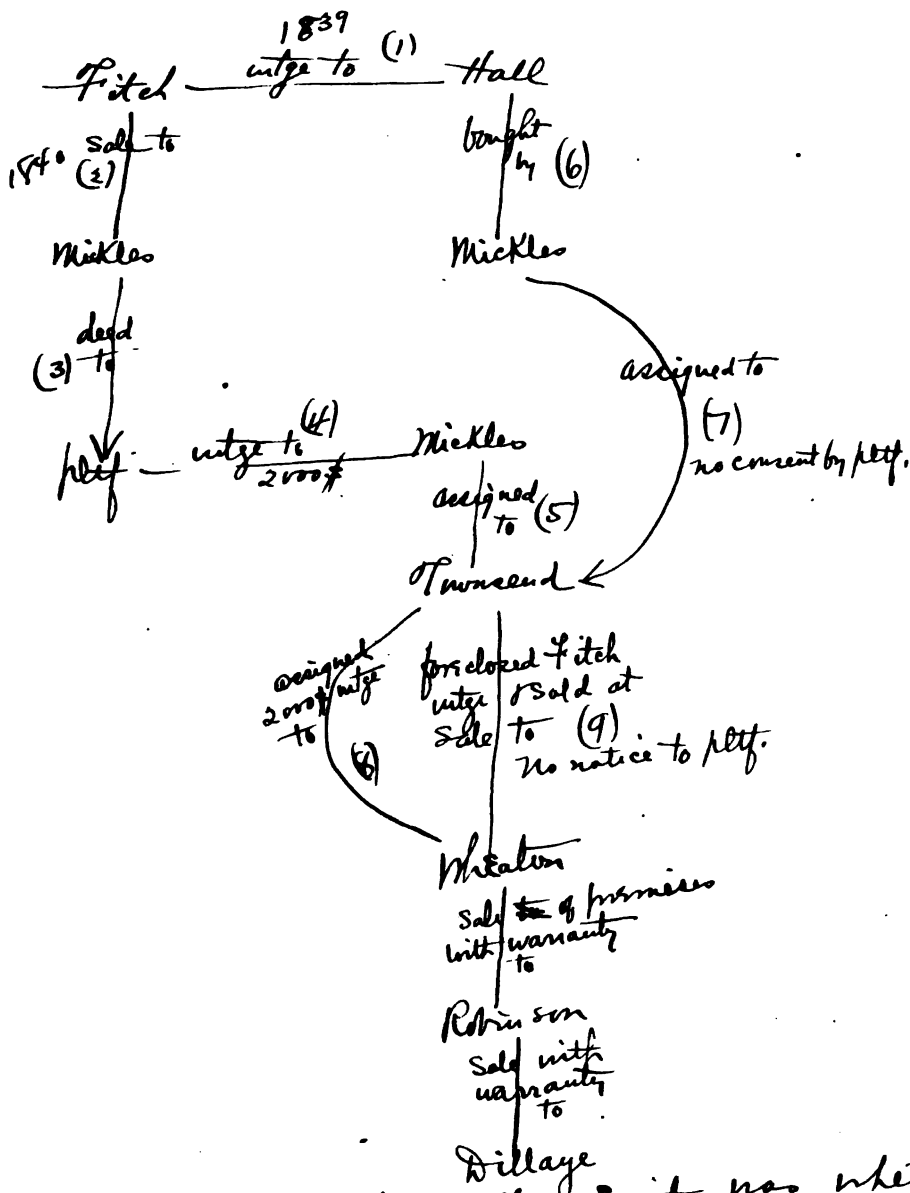 1839
Fitch mtge to (1) Hall
sale to
1840 (2)
bought
by (6)
Mickles
Mickles
deed
(3) to
assigned to
(7)
no consent by pltf.
pltf mtge to (4) Mickles
2000$
assigned
to (5)
Townsend
assigned
2000$ mtge
to
(8)
foreclosed Fitch
mtge & sold at
sale to (9)
no notice to pltf.
Wheaton
sale of premises
with warranty
to
Robinson
sale with
warranty
to
Dillaye
it was whe